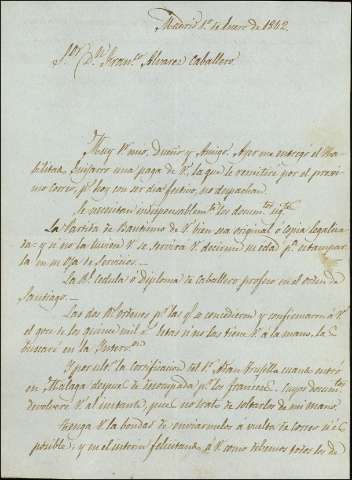 Madrid 1º de Enero de 1842.
S.or D.n Fran.co Alvarez Caballero
Muy S.r mio, Dueño y Amigo. Ayer me entregó el Ha-
bilitado una paga de V. la que le remitiré por el proxi-
mo correo, p.r hoy con ser dia festivo, no despachan.
Se necesitan indispensablem.te los docum.tos sig.tes
La Partida de Bautismo de V. bien sea original ó copia legaliza-
da: y si no la tuviere V. se servirá V. decirme su edad p.a estampar
la en su Oja de Servicios.
La R.l Cedula ó diploma de Caballero profeso en el orden de
Santiago.
Las dos R.s ordenes p.r las q.e se concedieron y confirmaron á V.
el goce de los quince mil r.s Estas si no las tiene V. á la mano, la
buscaré en la Interv.on
Y por ult.o la certificacion del S.r Trujillo cuando entró
en Malaga despues de desocupada p.r los franceses. Cuyos docum.tos
devolveré á V. al instante, pues no trato de soltarlos de mi mano.
Tenga V. la bondad de enviarmelos á vuelta de correo si es
posible; y en el interin felicitando á V. como debemos todos los de